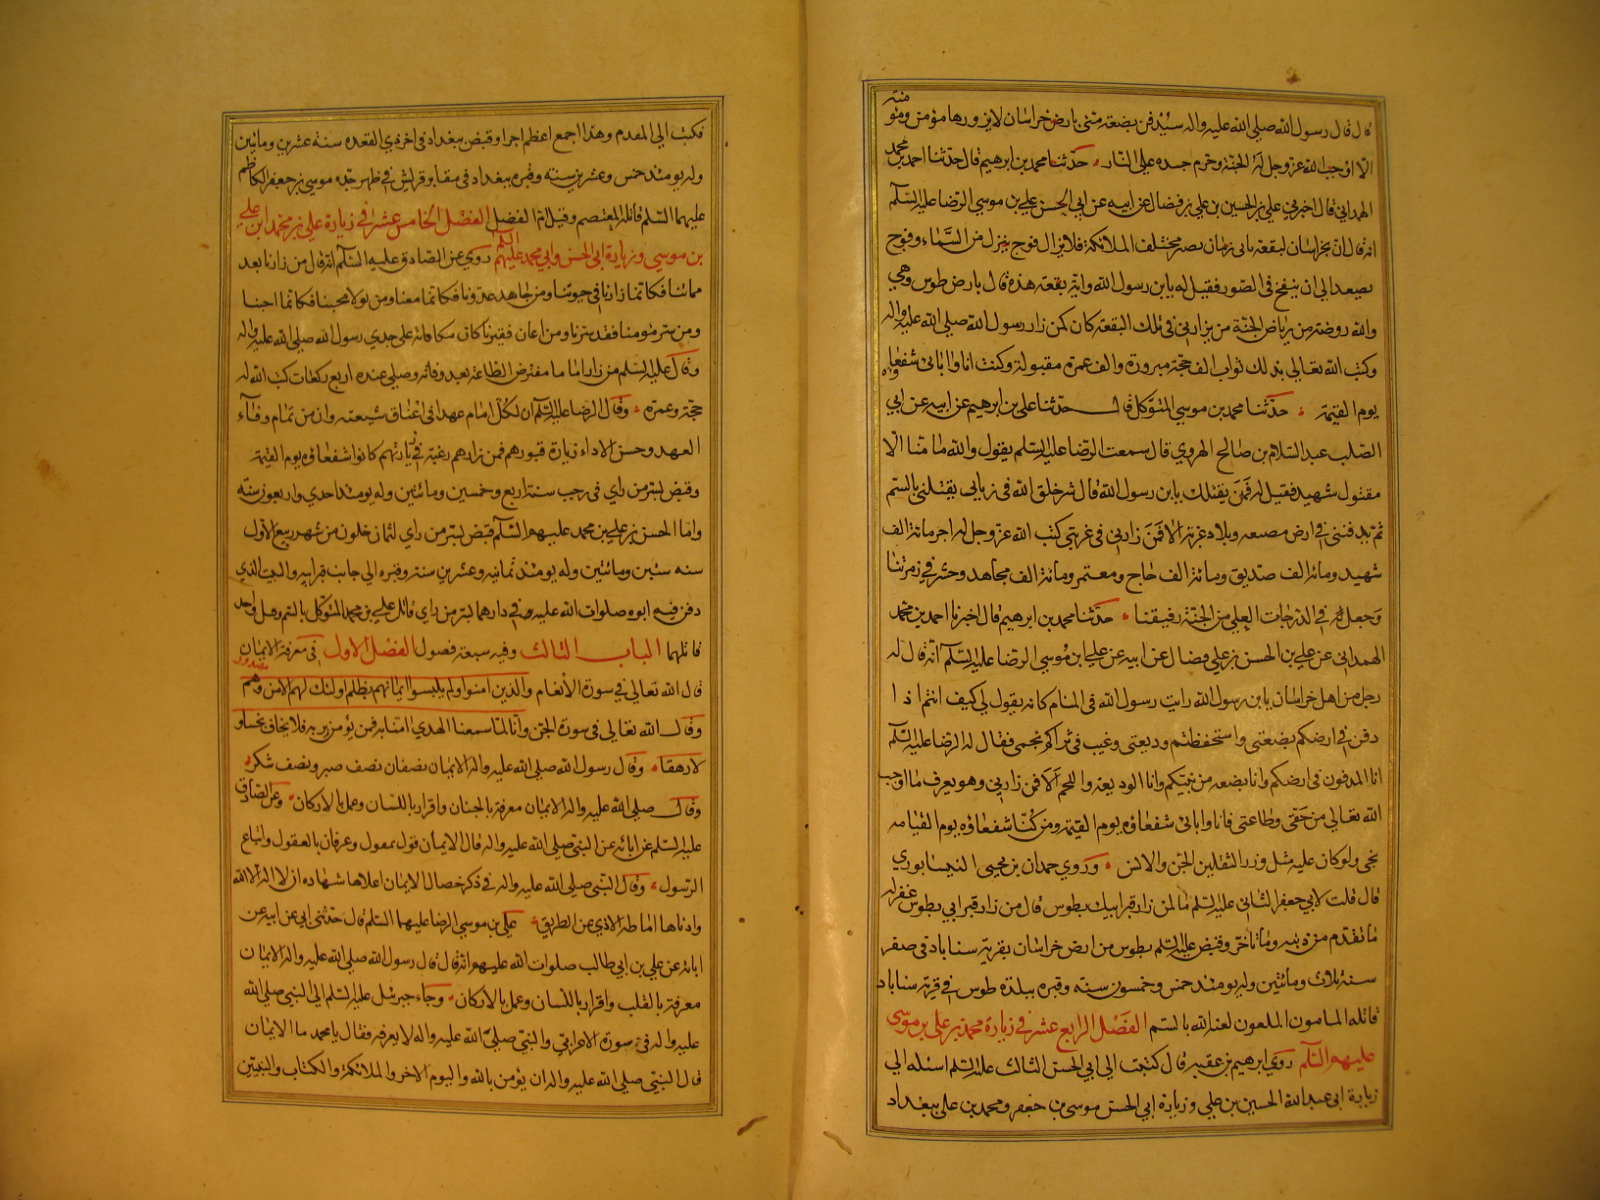 منه
قال قال رسول الله صلي الله عليه واله ستدفن بضعة مني بارض خراسان لايزورها مؤمن ومؤ
الا اوجب الله عز وجل له الجنة وحرم جسده علي النار حدثنا محمد بن ابرهيم قال حدثنا احمد بن محمد
الهمداني قال اخبرني علي بن الحسين بن علي بن فضال عن ابيه عن ابي الحسن علي بن موسي الرضا عليه السلم
انه قال ان بخراسان لبقعة ياتي زمان يصر مختلف الملائكة فلا يزال فوج ينزل من السماء وفوج
يصعد الي ان ينفخ في الصور فقيل له يا بن رسول الله واية بقعة هذه قال بارض طوس وهي
والله روضة من رياض الجنة من يزارني في تلك البقعة كان كمن زار رسول الله صلي الله عليه واله
وكتب الله تعالي بذلك ثواب الف حجة مبرورة والف عمرة مقبولة وكنت انا وابائي شفعاؤه
يوم القيمة حدثنا محمد بن موسي المتوكل قال حدثنا علي بن ابرهيم عن ابيه عن ابي
الصلب عبد السلام بن صالح الهروي قال سمعت الرضا عليه السلم يقول والله ما منا الا
مقتول شهيد فقيل له فمن يقتلك يا بن رسول الله قال شر خلق الله في زماني يقتلني بالسم
ثم يدفنني في ارض مضيعه وبلاد غربة الا فمن زارني في غربتي كتب الله عز وجل له اجر مائة الف
شهيد ومائة الف صديق ومائة الف حاج ومعتمر ومائة الف مجاهد وحشر في زمرتنا
وجعل في الدرجات العلي من الجنة رفيقنا حدثنا محمد بن ابرهيم قال اخبرنا احمد بن محمد
الهمداني عن علي بن الحسن بن علي فضال عن ابيه عن علي ابن موسي الرضا عليه السلم انه قال له
رجل من اهل خراسان يا بن رسول الله رايت رسول الله في المنام كانه يقول لي كيف انتم اذا
دفن في ارضكم بضعتي واستحفظتم وديعتي وغيب في ثراكم نجمي فقال له الرضا عليه السلم
انا المدفون في ارضكم وانا بضعه من نبيكم وانا الوديعة والنجم الا فمن زارني وهو يعرف ما اوجب
الله تعالي من حقي وطاعتي فانا وابائي شفعاؤه يوم القيمة ومن كنا شفعاؤه يوم القيامه
نجي ولو كان عليه مثل وزر الثقلين الجن والانس وروي حمدان بن يحيي النيسابوري
قال قلت لابي جعفر الثاني عليه السلم ما لمن زار قبر ابيك بطوس قال من زار قبر ابي بطوس غفر له
ما تقدم من ذنبه وما تاخر وقبض عليه السلم بطوس من ارض خراسان بقرية سناباد في صفر
سنة ثلاث ومائتين وله يومئذ خمس وخمسون سنة وقبره ببلدة طوس في قرية سناباد
قاتله المامون الملعون لعنه الله بالسم الفصل الرابع عشر في زيارة محمد بن علي بن موسي
عليهم السلم روي ابرهيم بن عقبه قال كتبت الي ابي الحسن الثالث عليه السلم اسئله الي
زيارة ابي عبد الله الحسين بن علي وزيارة ابي الحسن موسي بن جعفر ومحمد بن علي ببغداد
فكتب الي المقدم وهذا اجمع اعظم اجرا وقبض ببغداد في اخر ذي القعده سنة عشرين ومائتين
وله يومئذ خمس وعشرين سنة وقبره ببغداد في مقابر قرايش في ظهر جده موسي بن جعفر الكاظم
عليهما السلم قاتله المعتصم وقيل ام الفضل الفصل الخامس عشر في زيارة علي بن محمد ابن علي
بن موسي وزيارة ابي الحسن وابي محمد عليهم السلم روي عن الصادق عليه السلم انه قال من زارنا بعد
مماتنا فكانما زارنا في حيوتنا ومن جاهد عدونا فكانما معنا ومن تولا محبنا فكانما احبنا
ومن سر مؤمنا فقد سرنا ومن اعان فقيرنا كان مكافاته علي جدي رسول الله صلي الله عليه واله
وقال عليه السلم من زار اماما مفترض الطاعة بعد وفاته وصلي عنده اربع ركعات كتب الله له
حجة وعمرة وقال الرضا عليه السلم ان لكل امام عهدا في اعناق شيعته وان من تمام وفاء
العهد وحسن الاداء زيارة قبورهم فمن زارهم رغبة في زيارتهم كانوا شفعاؤه يوم القيمة
وقبض بسر من راي في رجب سنة اربع وخمسين ومائتين وله يومئذ احدي واربعون سنة
واما الحسن بن علي بن محمد عليهم السلم قبض بسر من راي لثمان خلون من شهر ربيع الاول
سنه ستين ومائتين وله يومئذ ثمانية وعشرين سنة وقبره الي جانب قبر ابيه والبيت الذي
دفن فيه ابوه صلوات الله عليه في دارهما بسر من راي قاتل علي بن محمد المتوكل بالسم وهل واحد
قاتلهما الباب الثالث وفيه سبعة فصول الفصل الاول في معرفة الايمان
قال الله تعالي في سورة الانعام والذين امنوا ولم يلبسوا ايمانهم بظلم اولئك لهم الامن وهم مهتدون
وقال الله تعالي في سورة الجن وانا لما سمعنا الهدي امنا به فمن يؤمن بربه فلا يخاف بخسا و
لا رهقا وقال رسول الله صلي الله عليه واله الايمان نصفان نصف صبر ونصف شكر
وقال صلي الله عليه واله الايمان معرفة بالجنان واقرار باللسان وعمل بالاركان وعن الصادق
عليه السلم عن ابائه عن النبي صلي الله عليه واله قال الايمان قول بمقول وعرفان بالعقول واتباع
الرسول وقال النبي صلي الله عليه واله في ذكر خصال الايمان اعلاها شهاده ان لا اله الا الله
وادناها اماطة الاذي عن الطريق علي بن موسي الرضا عليهما السلم قال حدثني ابي عن ابيه عن
ابائه عن علي بن ابي طالب صلوات الله عليهم انه قال قال رسول الله صلي الله عليه واله الايمان
معرفة بالقلب واقرار باللسان وعمل بالاركان وجاء جبرئيل عليه السلم الي النبي صلي الله
عليه واله في سورة الاعرابي والنبي صلي الله عليه واله لا يعرفه فقال يا محمد ما الايمان
قال النبي صلي الله عليه واله ان يؤمن بالله واليوم الاخر والملائكة والكتاب والنبيين